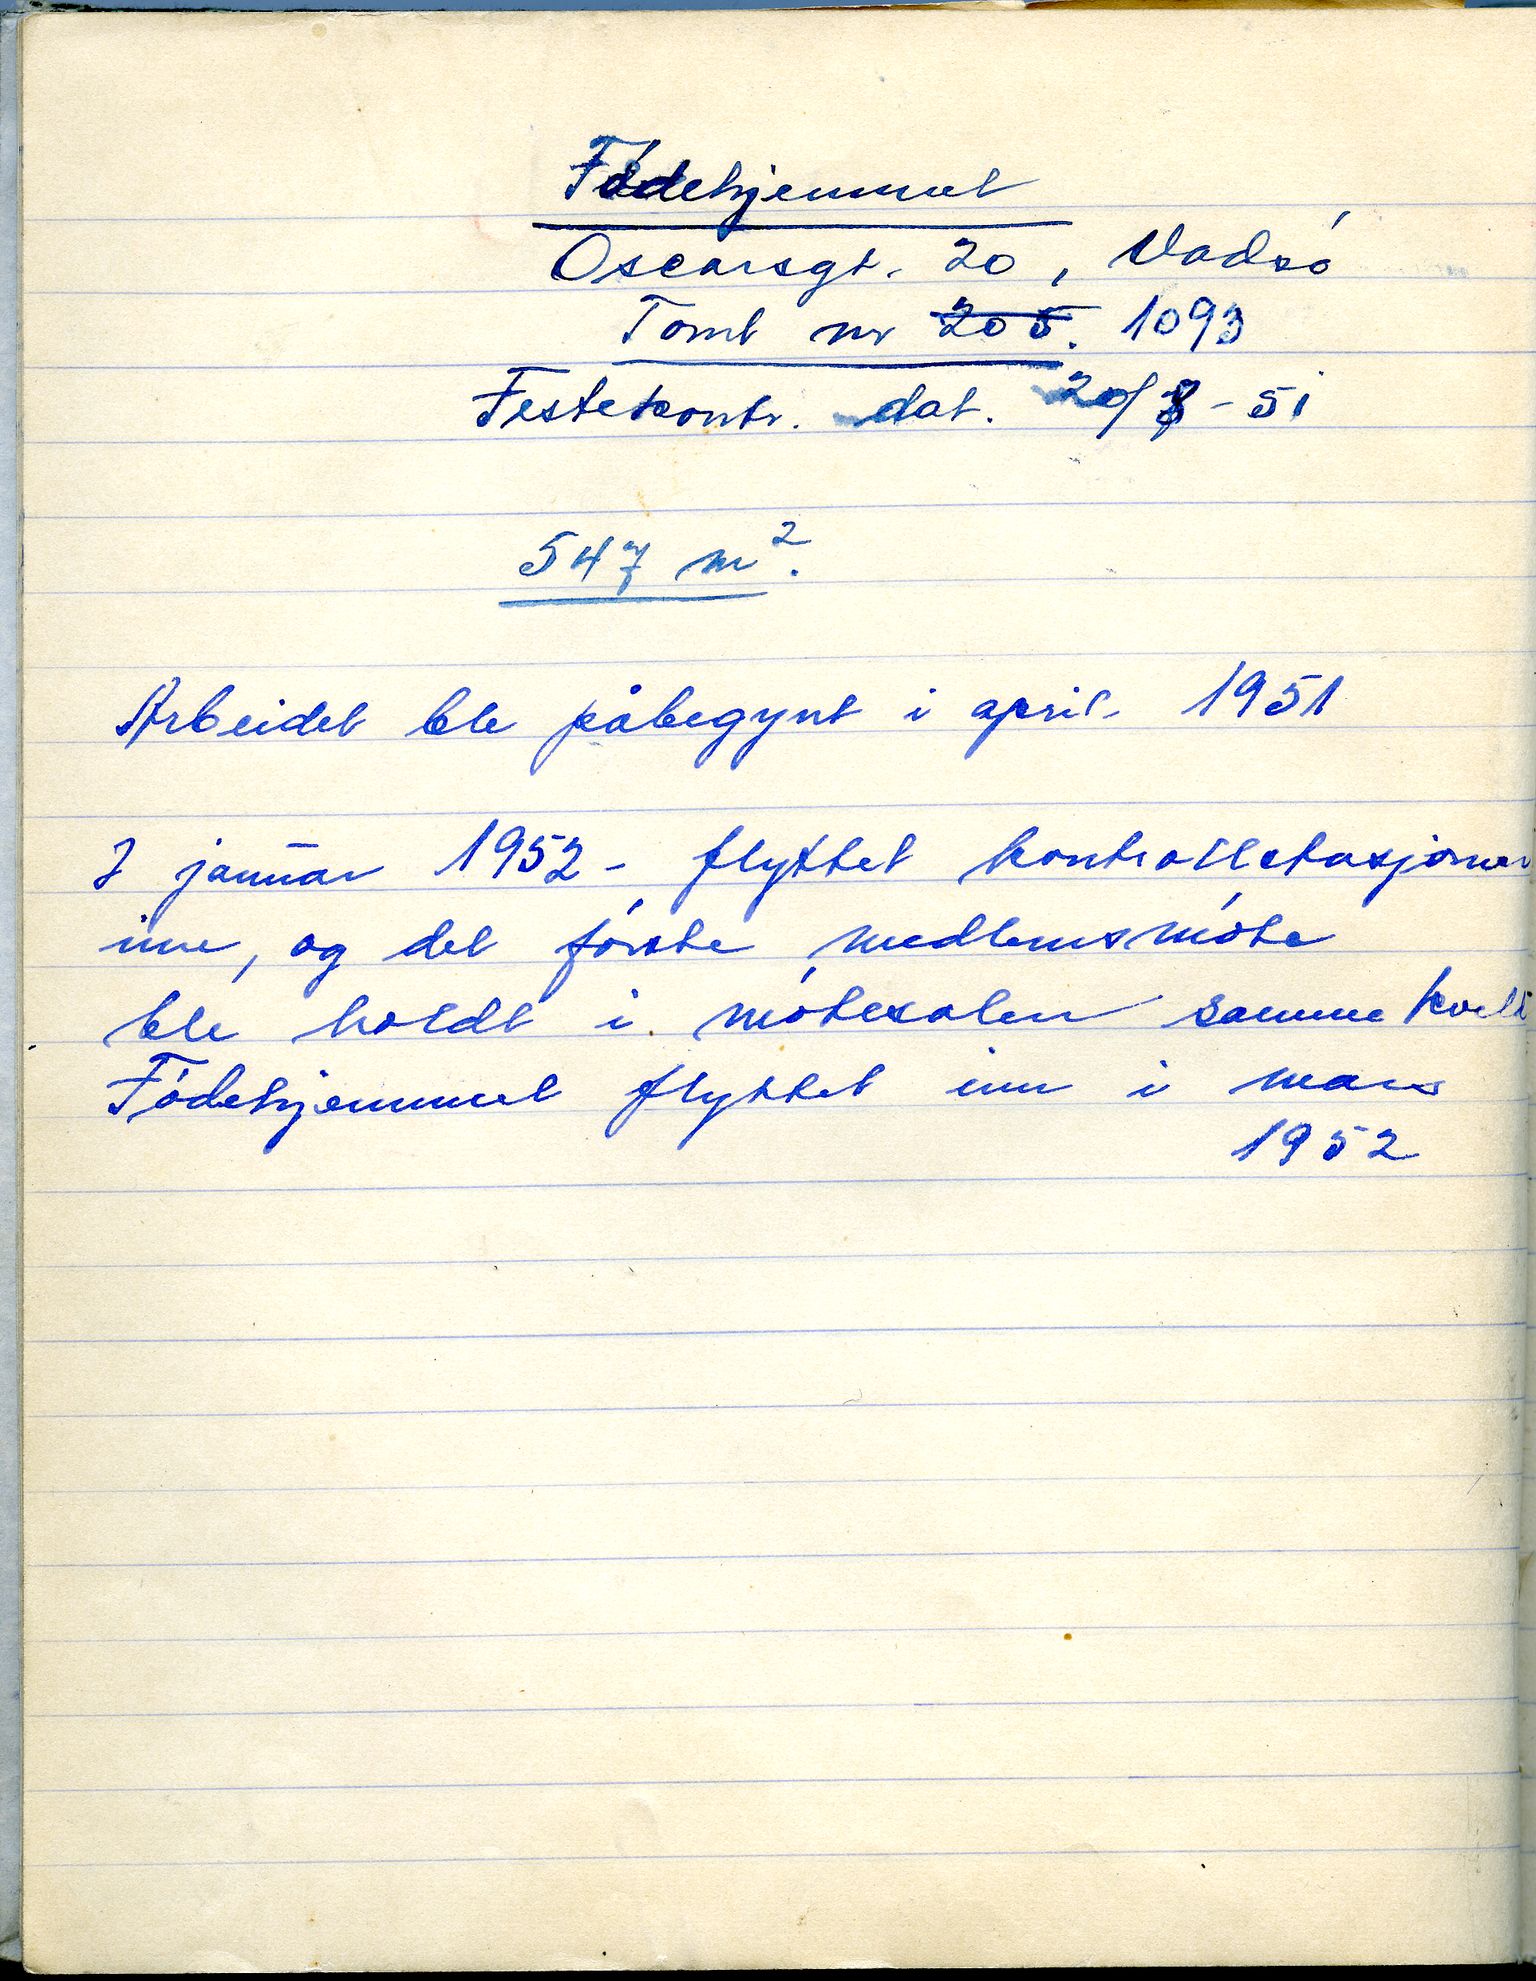 Fødehjemmet
Oscarsgt. 20, Vadsø
Tomt nr 205. 1093
Festekontr. dat. 20/8-51
547 m².
Arbeidet ble påbegynt i april. 1951
I januar 1952 - flyttet kontrollstasjonen
inn, og det første medlemsmøte
ble holdt i møtesalen samme kveld
Fødehjemmet flyttet inn i mars
1952